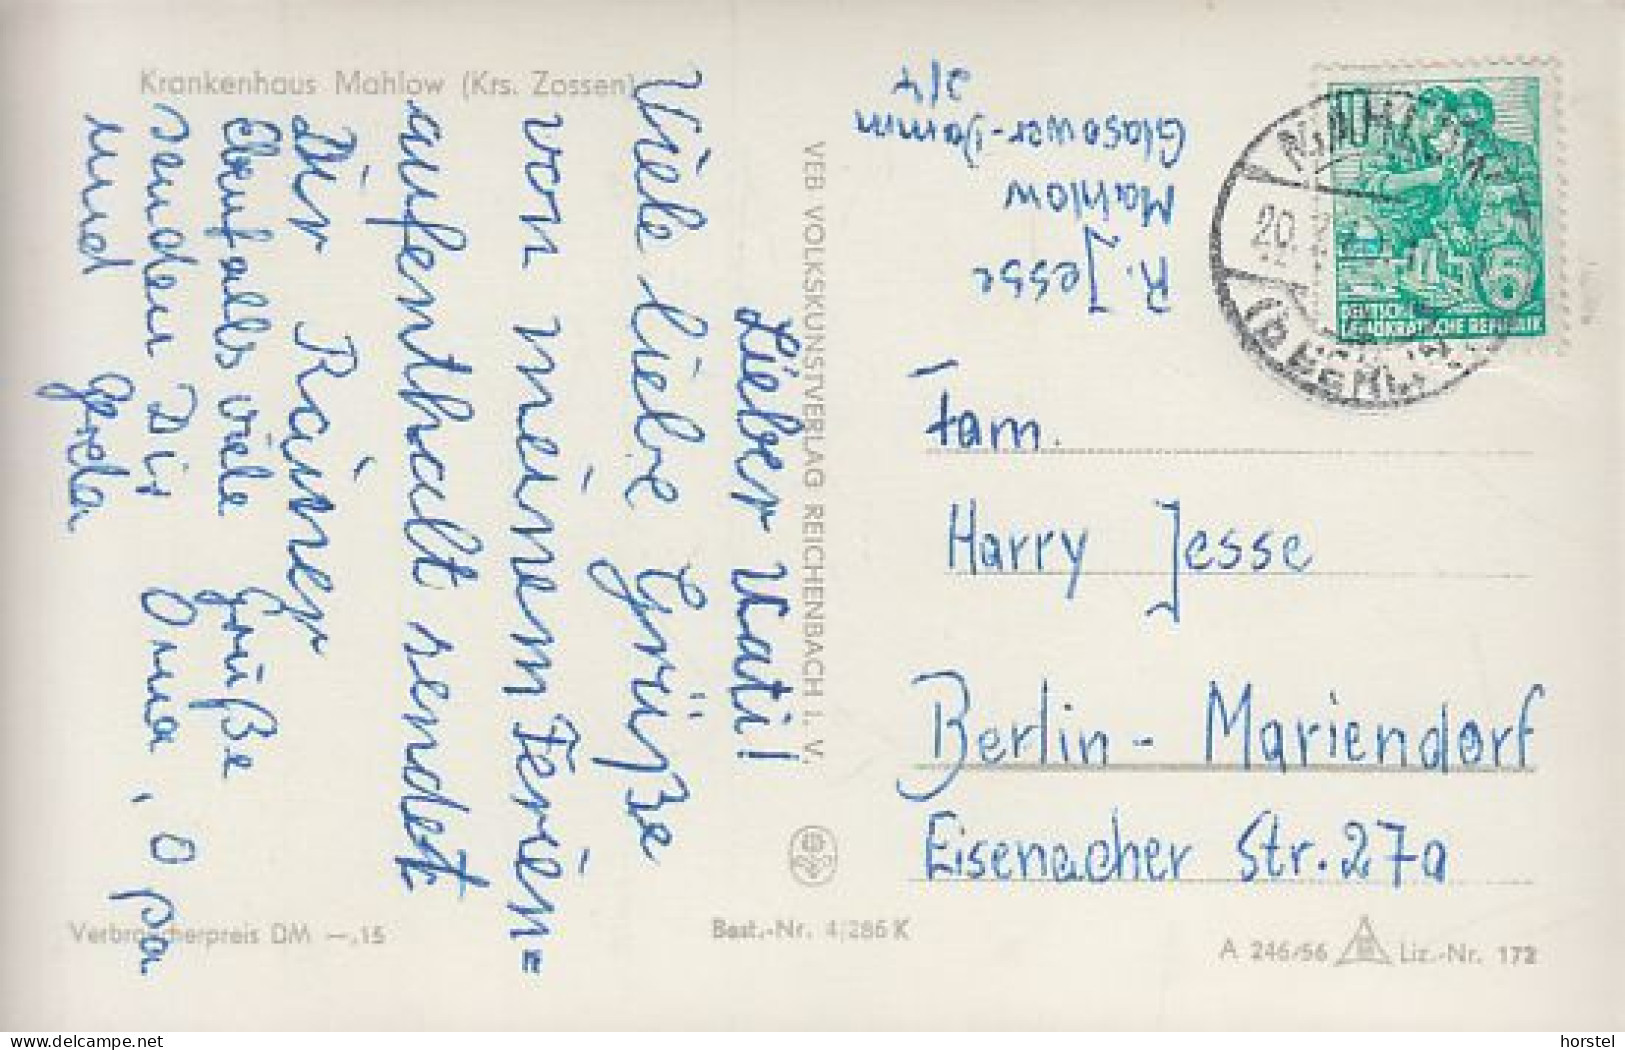 Krankenhaus Mahlow (Krs. Zossen)
Lieber Vati!
Viele liebe Grüße
von meinem Ferien=
aufenthalt sendet
Dir Rainer
Ebenfalls viele Grüße
senden Dir Oma, Opa
und Gerda
VEB VOLKSKUNSTVERLAG REICHENBACH I. V.
R. Jesse
Mahlow
Glasower-Damm
MAHLOW
20.
(b BERLIN
6
DEUTSCHE
DEMOKRATISCHE REPUBLIK
Fam.
Harry Jesse
Berlin - Mariendorf
Eisenacher Str. 27a
Verbraucherpreis DM —.15
Best.-Nr. 4/286 K
A 246/56
Liz.-Nr. 172
delcampe.net
horstel